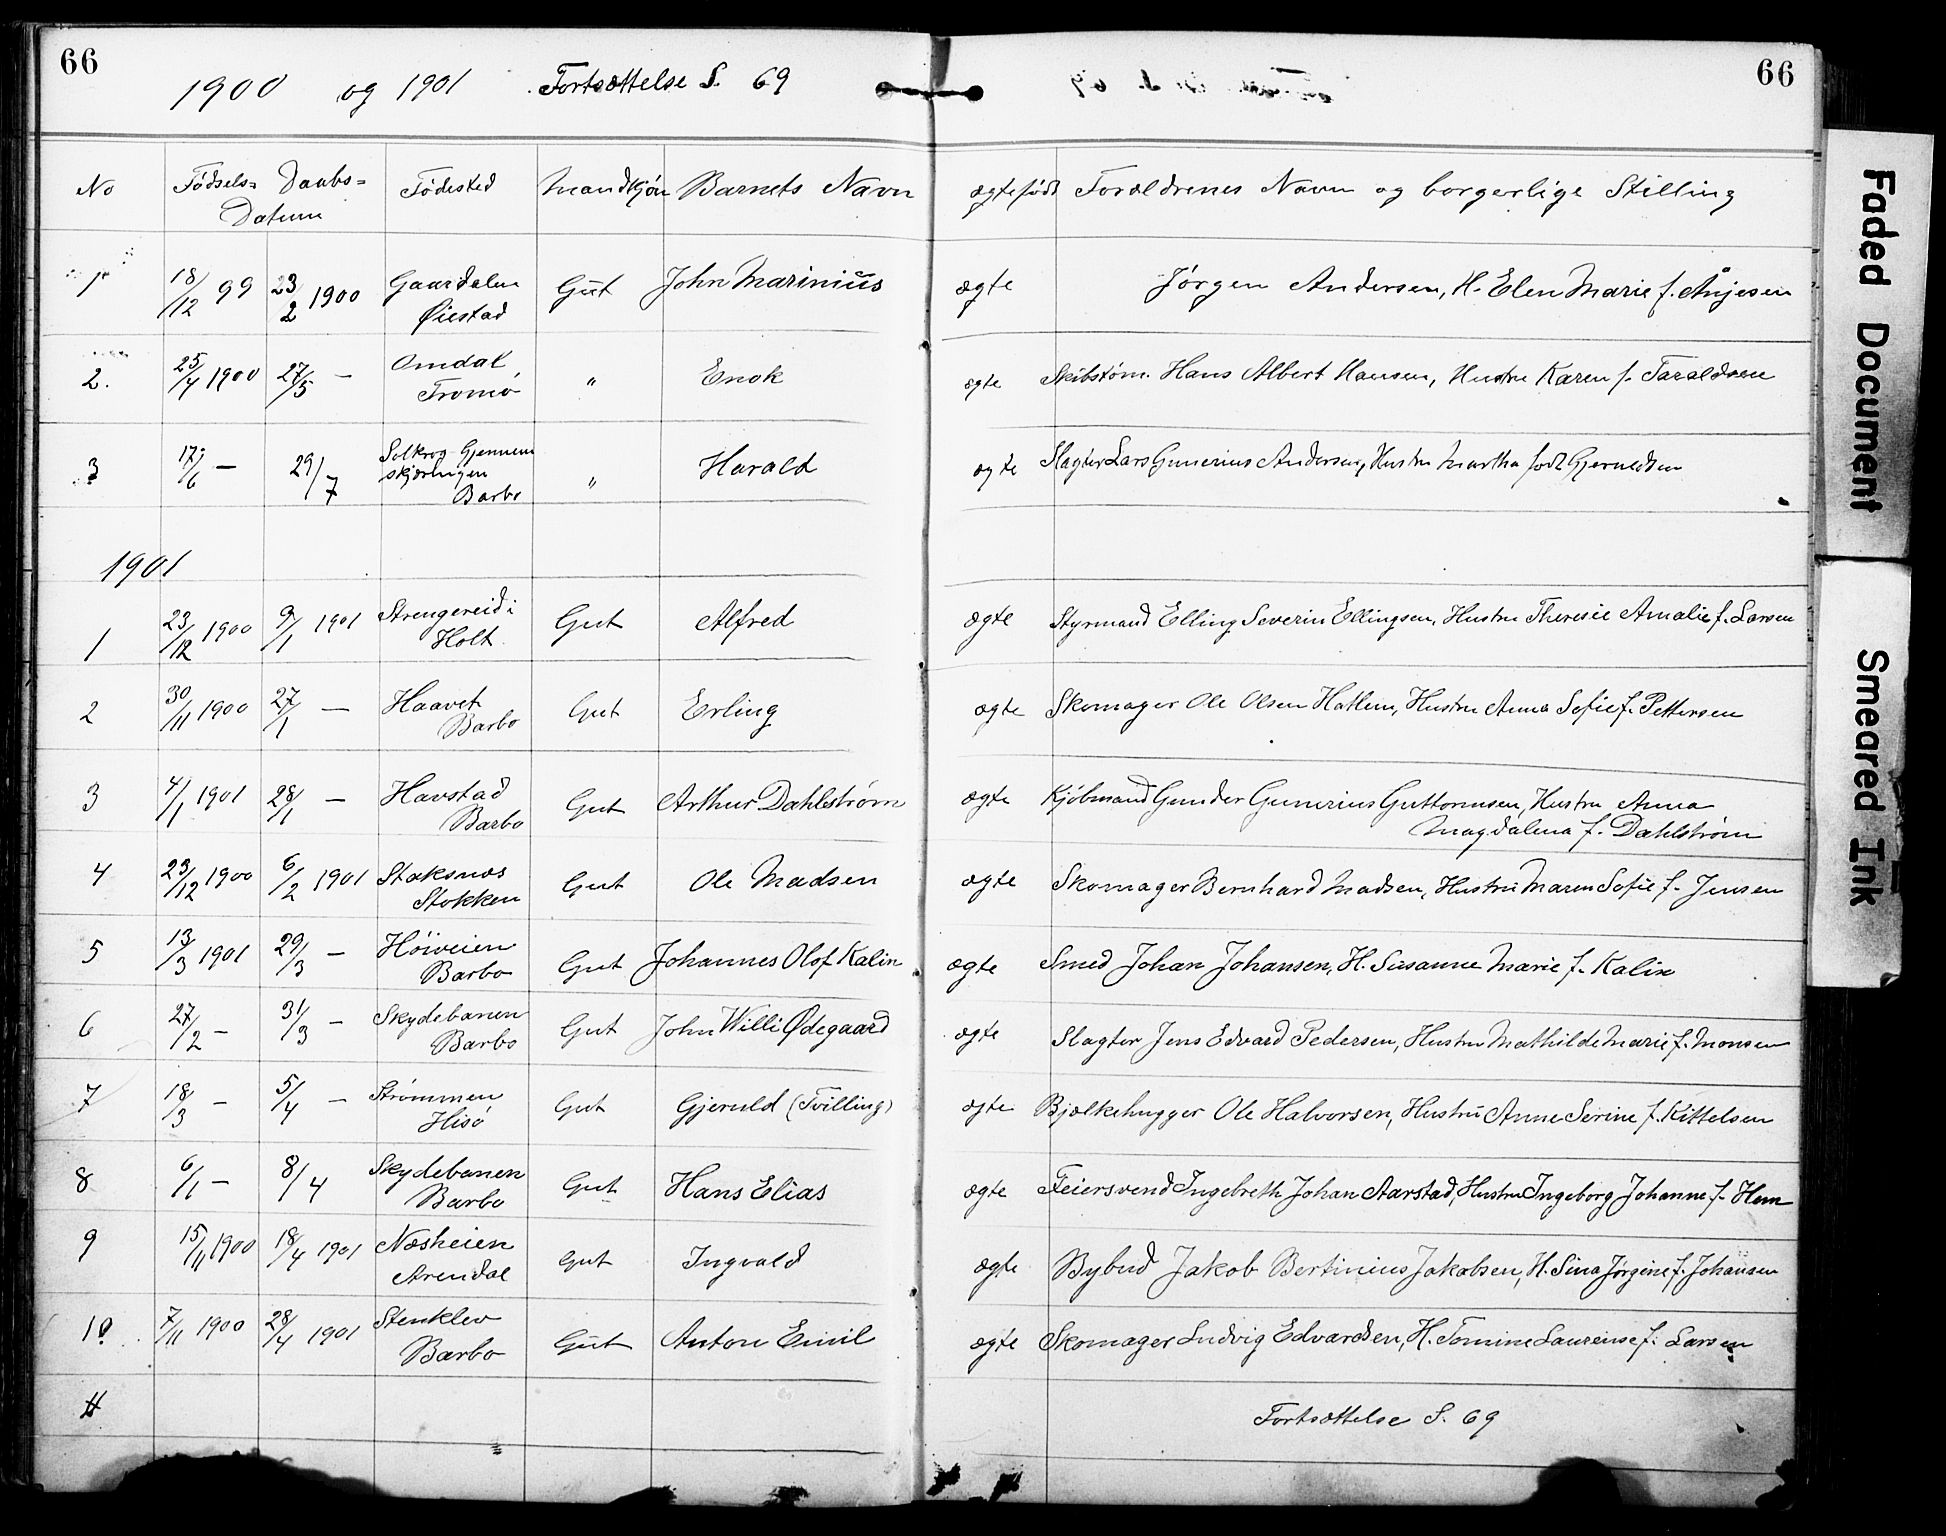 66
66
1900 og 1901 Fortsættelse S. 69
No Fødsels= Daabs= Fødested Mandkjøn Barnets Navn ægtefødt Forældrenes Navn og borgerlige Stilling
Datum
1 18/12 99 23/2 1900 Gaardalen Gut John Marinius ægte Jørgen Andersen, H. Elen Marie f.
Øiestad
2. 25/4 1900 27/5 — Omdal " Enok ægte Skibstøm. Hans Albert Hansen, Hustru Karen f. Taraldsen
Tromø
3 17/6 — 29/7 Solkrog Gjennem " Harald ægte Slagter Lars Gunerius Andersen, Hustru Martha født Gjeruldsen
skjæringen
Barbo
1901
1 23/12 1900 9/1 1901 Strengereid i Gut Alfred ægte Styrmand Elling Severin Ellingsen, Hustru Theresie Amalie f. Larsen
Holt
2 30/11 1900 27/1 — Haavet Gut Erling ægte Skomager Ole Olsen Hatlem, Hustru Anna Sofie f. Pettersen
Barbo
3 4/1 1901 28/1 — Havstad Gut Arthur Dahlstrøm ægte Kjøbmand Gunder Gunerius Guttormsen, Hustru Anna
Barbo Magdalena f. Dahlstrøm
4 23/12 1900 6/2 1901 Staksnæs Gut Ole Madsen ægte Skomager Bernhard Madsen, Hustru Maren Sofie f. Jensen
Stokken
5 13/3 1901 29/3 — Høiveien Gut Johannes Olof Kalin ægte Smed Johan Johansen, H. Susanne Marie f. Kalin
Barbo
6 27/2 — 31/3 — Skydebanen Gut John Willi Ødegaard ægte Slagter Jens Edvard Pedersen, Hustru Mathilde Marie f. Monsen
Barbo
7 18/3 — 5/4 — Strømmen Gut Gjeruld (Tvilling) ægte Bjælkehugger Ole Halvorsen, Hustru Anne Serine f. Kittelsen
Hisø
8 6/1 — 8/4 Skydebanen Gut Hans Elias ægte Feiersvend Ingebreth Johan Aarstad, Hustru Ingeborg Johanne f.
Barbo
9 15/11 1900 18/4 1901 Næsheien Gut Ingvald ægte Bybud Jakob Bertinius Jakobsen, H. Sina Jørgine f. Johansen
Arendal
10. 7/11 1900 28/4 1901 Stenklev Gut Anton Emil ægte Skomager Ludvig Edvardsen, H. Tomine Laurense f. Larsen
Barbo
11
Fortsættelse S. 69
Faded Document
Smeared Ink